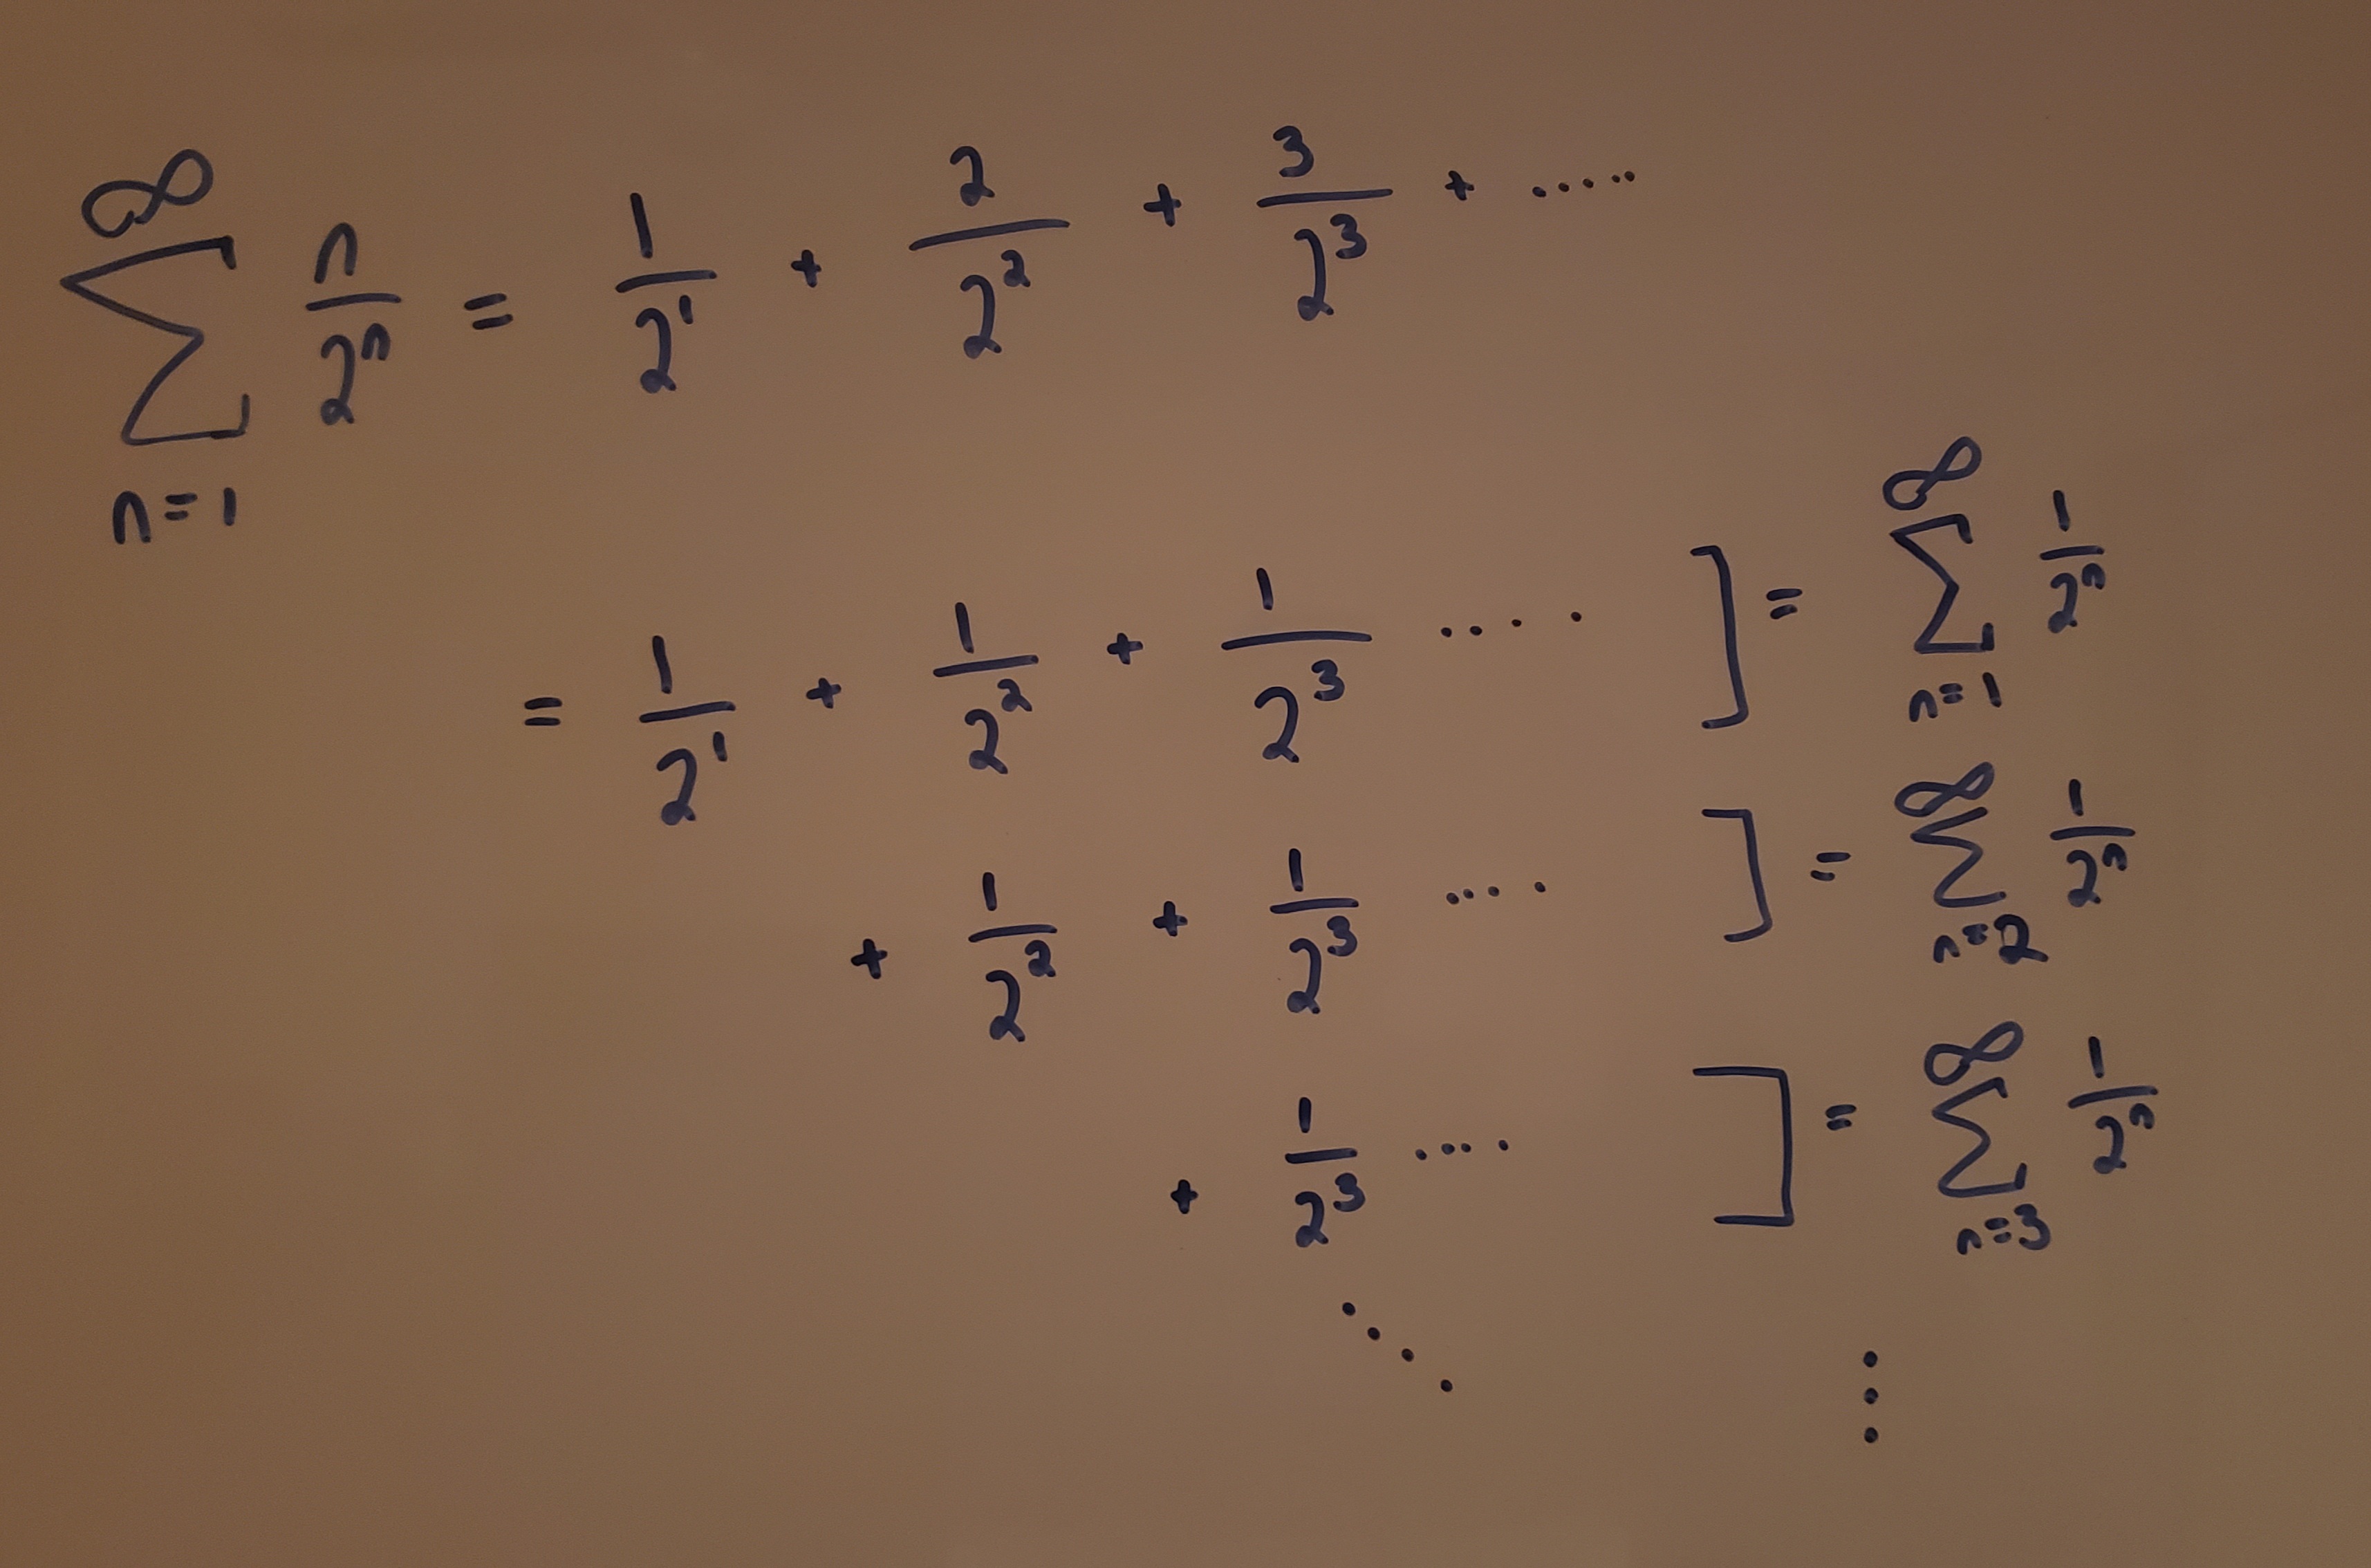 ∑_{n=1}^{∞} n/2^n = 1/2^1 + 2/2^2 + 3/2^3 + .....
= 1/2^1 + 1/2^2 + 1/2^3 .... ] = ∑_{n=1}^{∞} 1/2^n
+ 1/2^2 + 1/2^3 .... ] = ∑_{n=2}^{∞} 1/2^n
+ 1/2^3 .... ] = ∑_{n=3}^{∞} 1/2^n